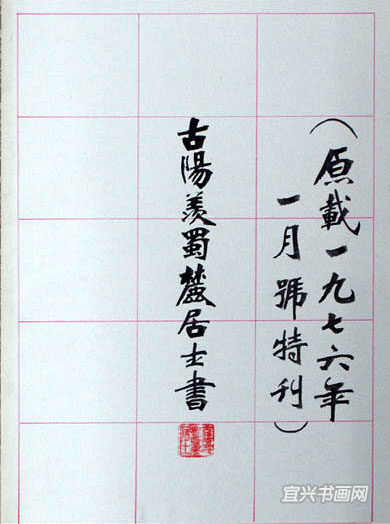 （原載一九七六年
一月號特刊）
古陽羨蜀麓居士書
宜兴书画网